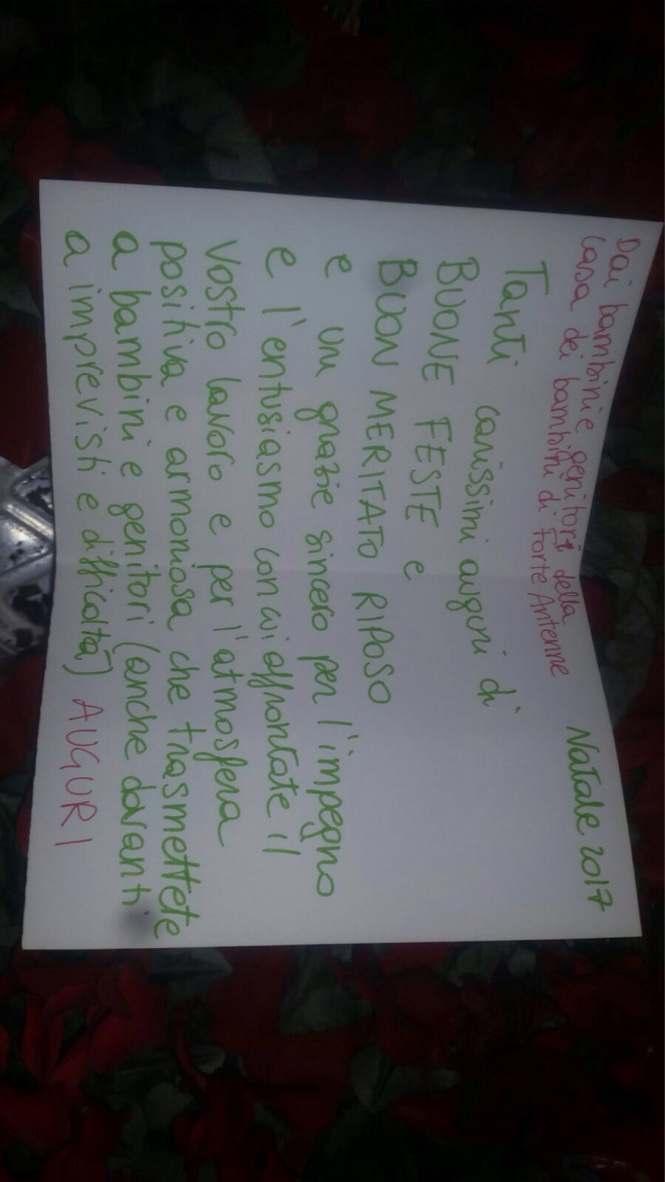 Dai bambini e genitori della
casa dei bambini di Forte Antenne
Natale 2017
Tanti carissimi auguri di
BUONE FESTE e
BUON MERITATO RIPOSO
e un grazie sincero per l'impegno
e l'entusiasmo con cui affrontate il
vostro lavoro e per l'atmosfera
positiva e armoniosa che trasmettete
a bambini e genitori (anche davanti
a imprevisti e difficoltà) AUGURI